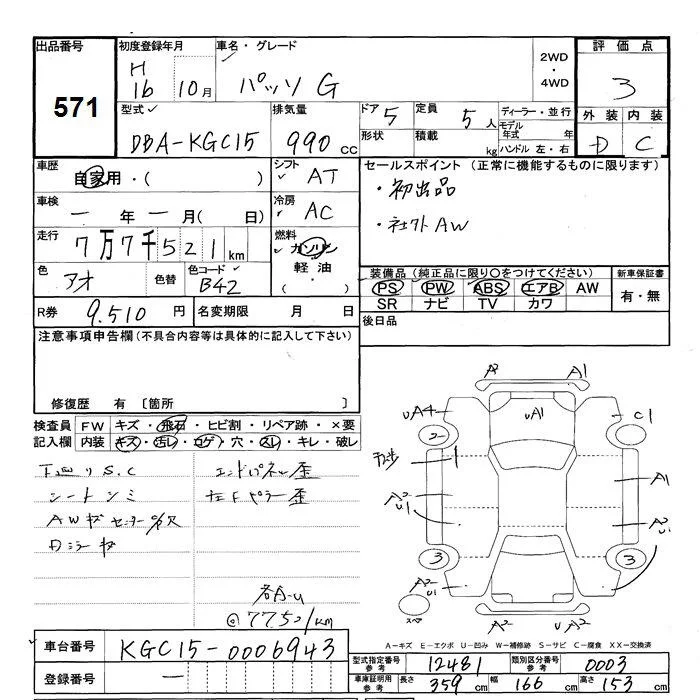 出品番号
571
初度登録年月
H 16 10月
車名・グレード
パッソ G
2WD
・
4WD
評価点
3
外装 内装
D C
型式
DBA-KGC15
排気量
990 cc
ドア 5
形状
定員 5人
積載 kg
ディーラー・並行
モデル年式 年
ハンドル 左・右
車歴
自家用・( )
シフト AT
車検
ー年ー月( 日)
冷房 AC
走行
7万7千521km
燃料
ガソリン
軽油
・( )
色
アオ
色替
色コード
B42
R券 9,510円
名変期限 月 日
セールスポイント (正常に機能するものに限ります)
・初出品
・社外AW
装備品 (純正品に限り○をつけてください)
PS PW ABS エアB AW
SR ナビ TV カワ
新車保証書
有・無
後日品
注意事項申告欄(不具合内容等は具体的に記入して下さい)
修復歴 有 〔箇所 〕
検査員記入欄
FW キズ・飛石・ヒビ割・リペア跡・×要
内装 キズ・汚レ・コゲ・穴・スレ・キレ・破レ
下廻りS.C
シートシミ
AWキズセンターC/穴
Dミラーキズ
エンドパネル歪
左Fピラー歪
各A-U
@77521km
A2 A1
UA4 UA1 C1
2
A2
U1
A1
A2
U1
3 3
A2
U1
スペア
A2 UA2
A-キズ E-エクボ U-凹み W-補修跡 S-サビ C-腐食 XX-交換済
車台番号 KGC15-0006943
登録番号 ー
型式指定番号参考 12481
類別区分番号参考 0003
車庫証明用参考 長さ 359cm 幅 166cm 高さ 153cm